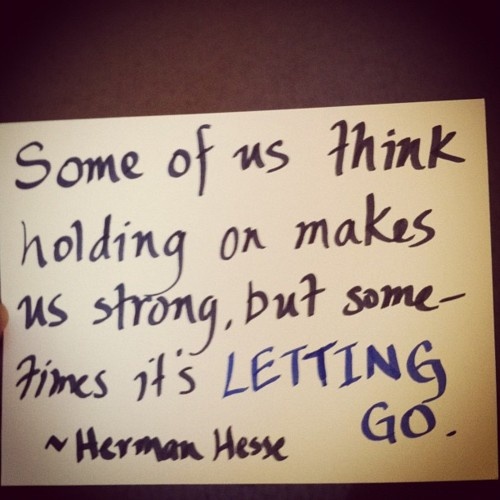 Some of us think
holding on makes
us strong, but some-
times it's LETTING
GO.
~ Herman Hesse